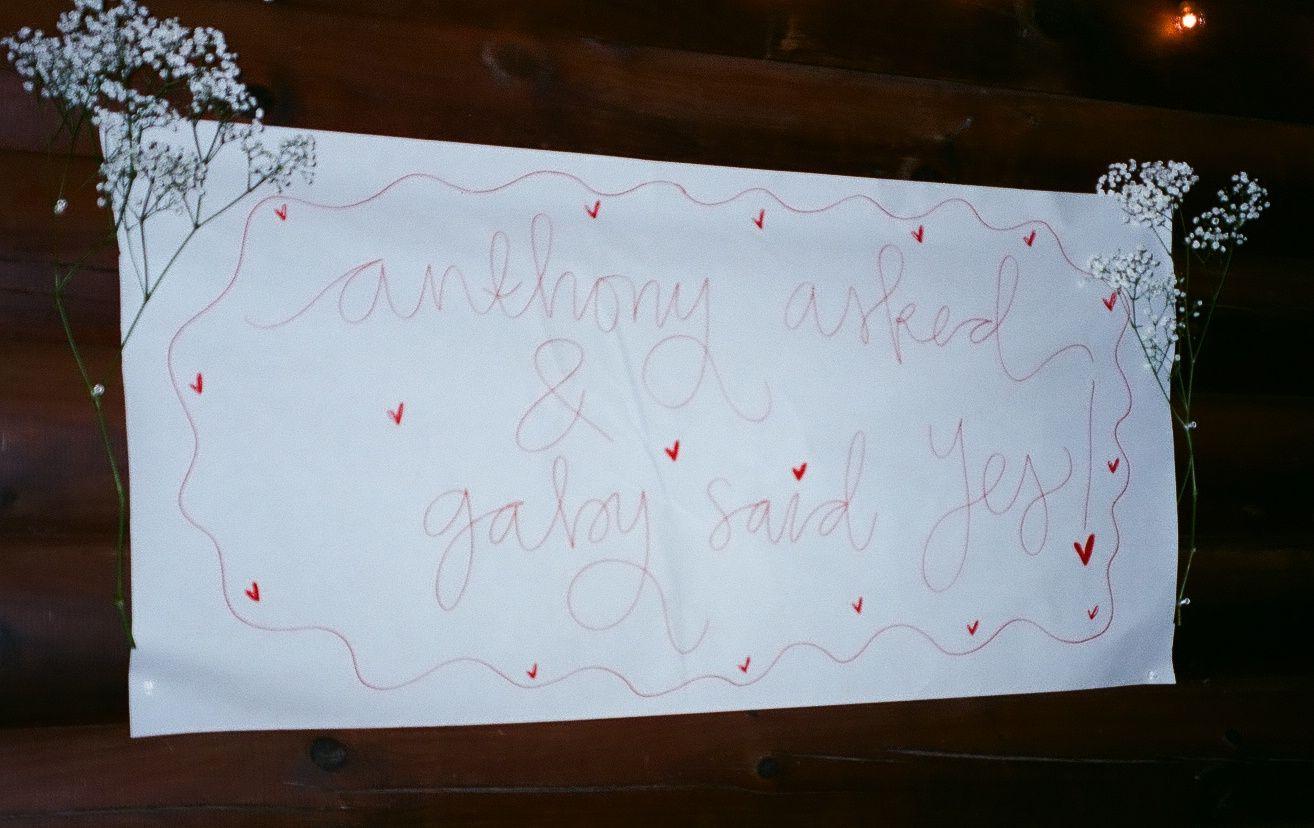 anthony asked
&
gaby said yes!